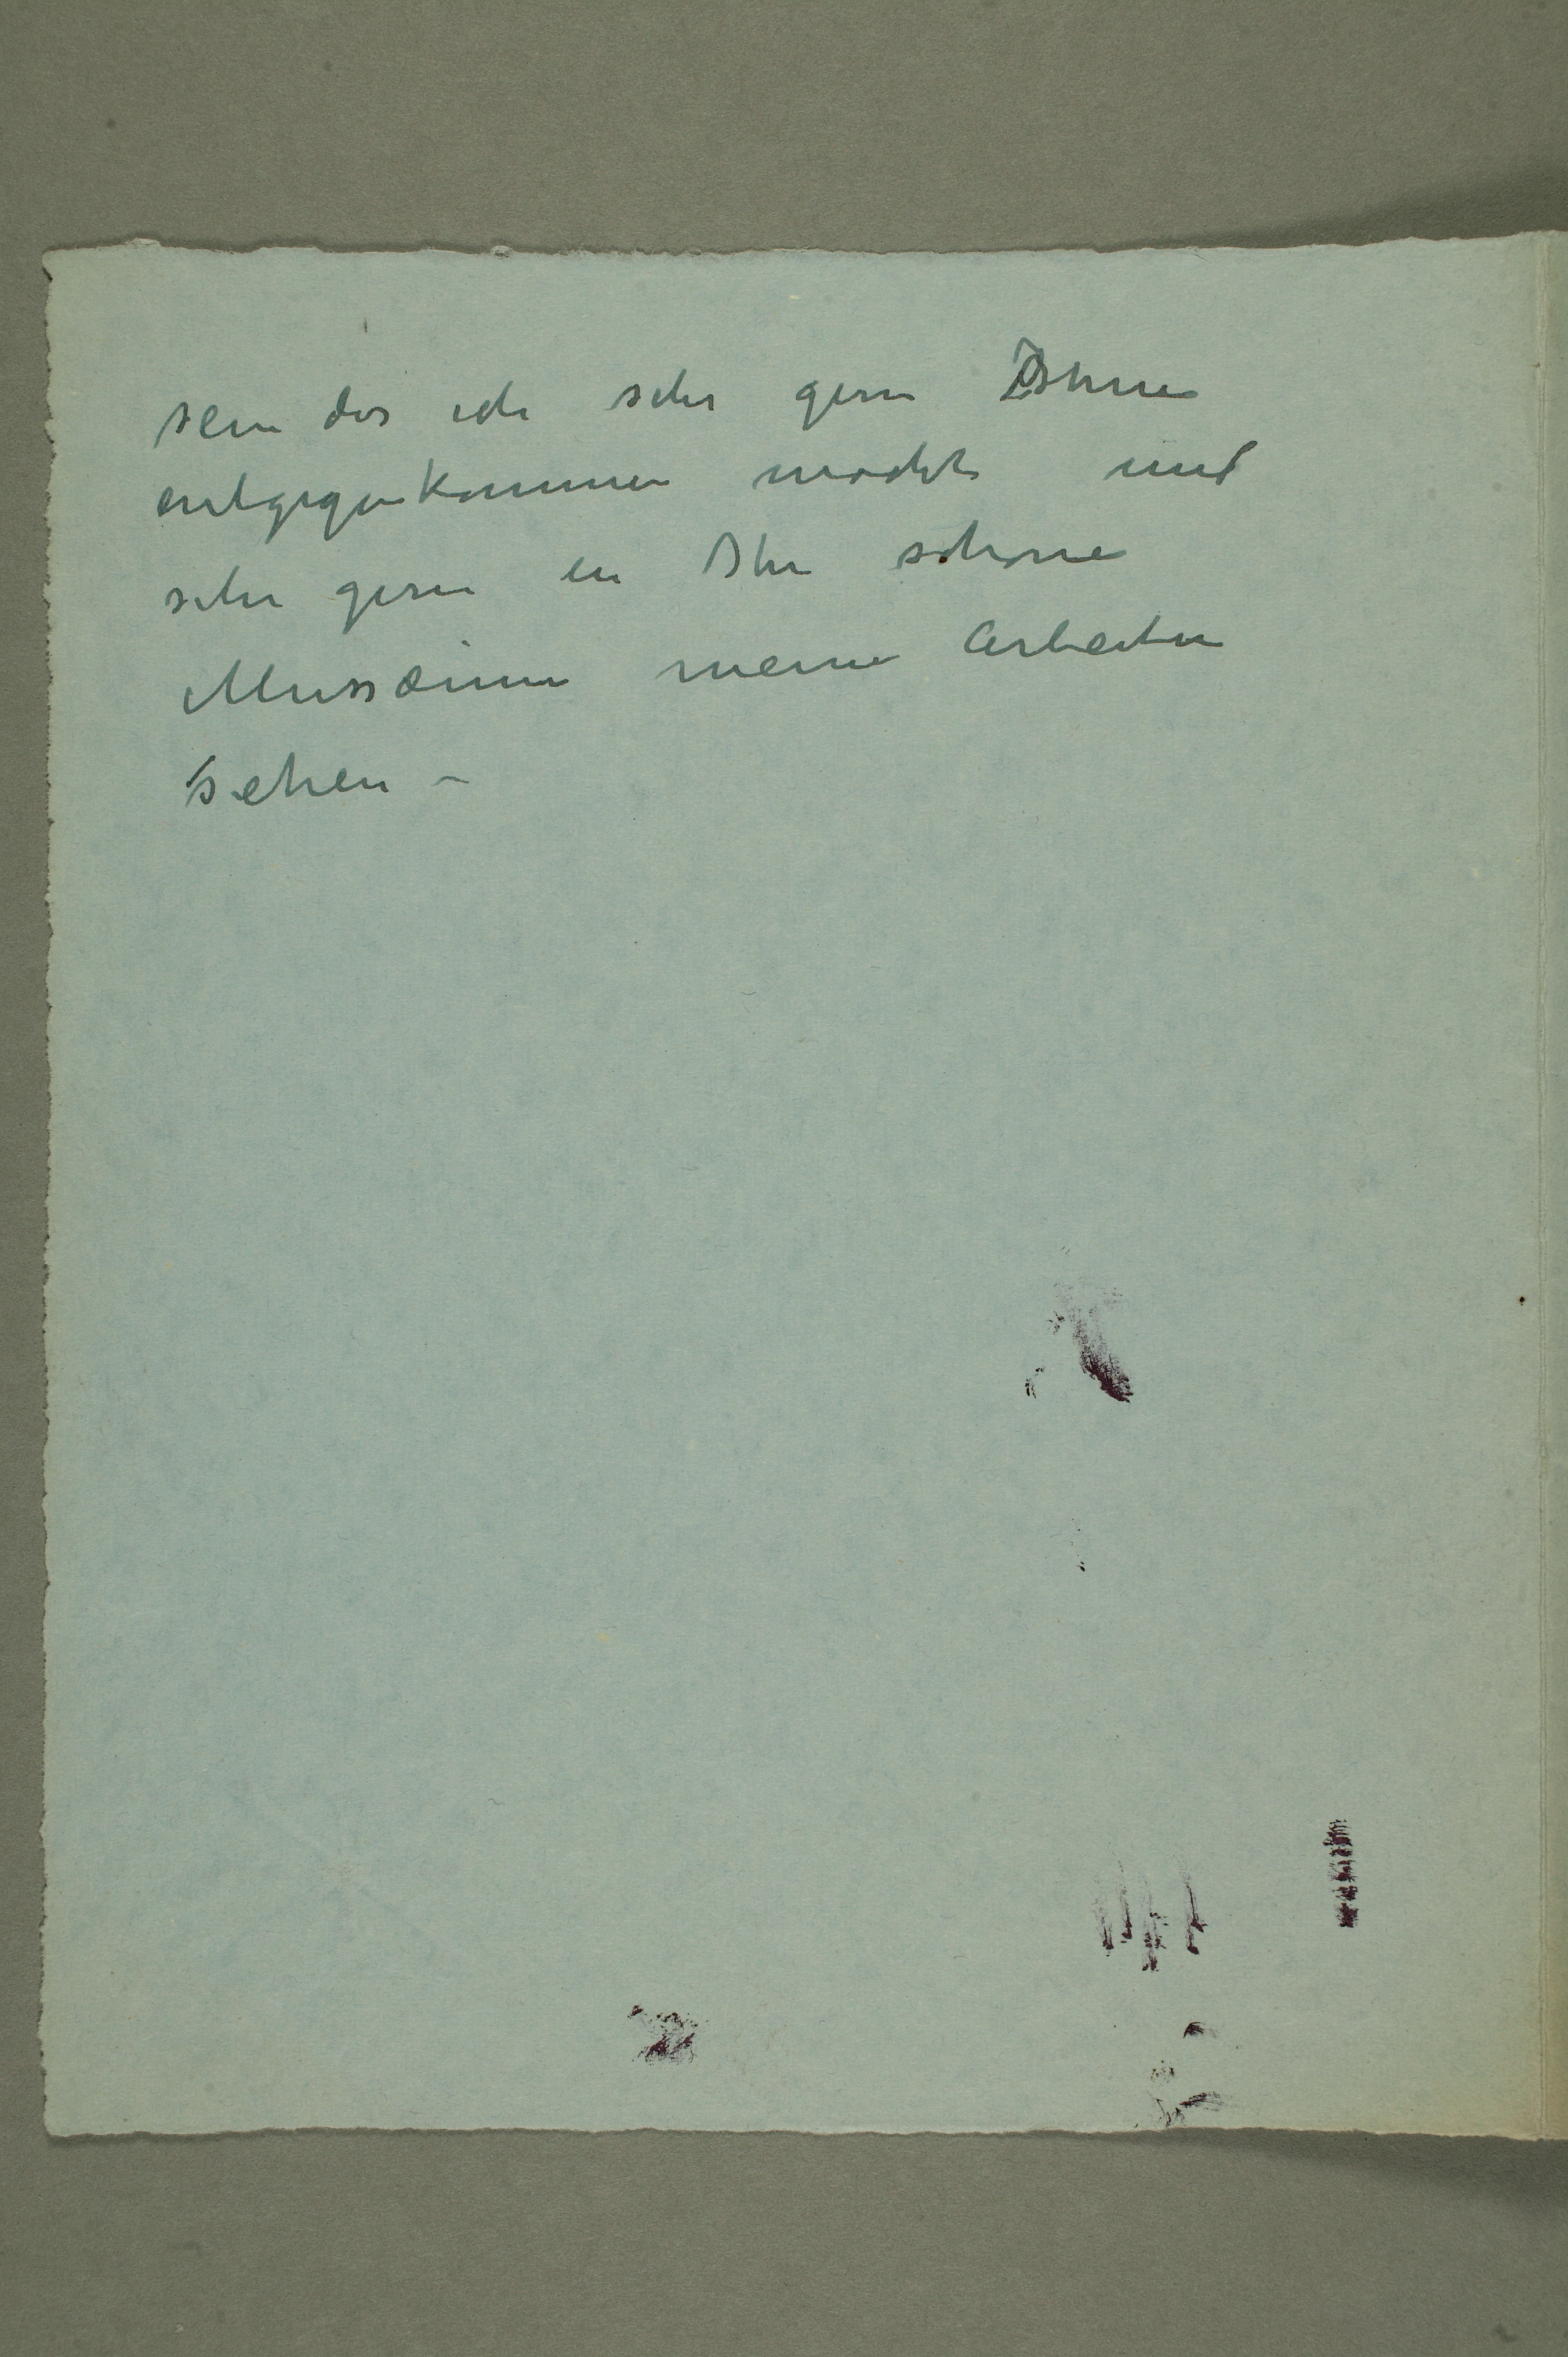 sein das ich sehr gern Ihnen
entgegenkommen mochte und
sehr gern in Ihr schöne
Mussæum meine Arbeiten
sehen –